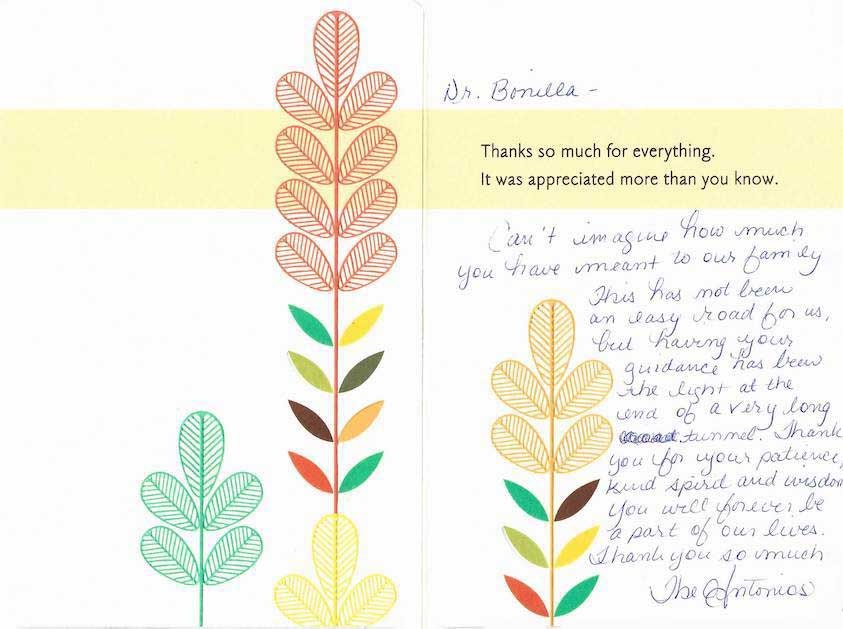 Dr. Bonilla -
Thanks so much for everything.
It was appreciated more than you know.
Can't imagine how much
you have meant to our family
This has not been
an easy road for us,
but having your
guidance has been
the light at the
end of a very long
tunnel. Thank
you for your patience,
kind spirit and wisdom
You will forever be
a part of our lives.
Thank you so much
The Antonios